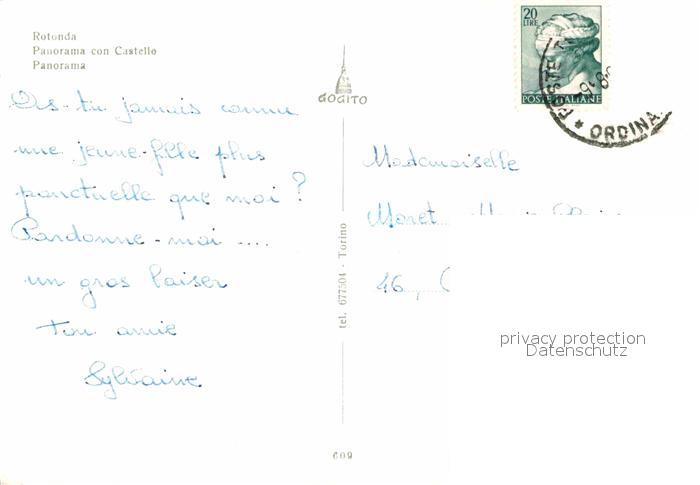 Rotonda
Panorama con Castello
Panorama
GOGITO
20
LIRE
POSTE ITALIANE
POSTE
* ORDINA
As-tu jamais connu
une jeune-fille plus
ponctuelle que moi ?
Pardonne-moi ....
un gros baiser
Ton amie
Sylvaine
tel. 677504 - Torino
609
Mademoiselle
Moret
46,
privacy protection
Datenschutz